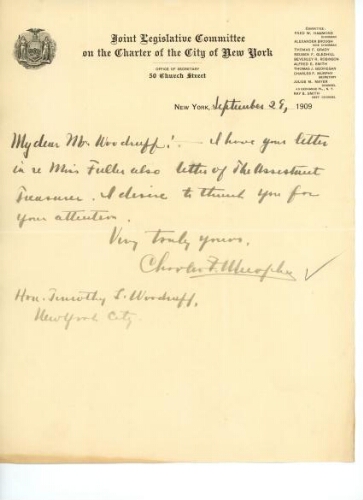 Joint Legislative Committee
on the Charter of the City of New York
OFFICE OF SECRETARY
50 Church Street
COMMITTEE:
CHAIRMAN
THOMAS F. GRADY
BEVERLEY R. ROBINSON
ALFRED E. SMITH
CHARLES F. MURPHY
SECRETARY
JULIUS M. MAYER
COUNSEL
RAY B. SMITH
NEW YORK, September 28, 1909
My dear Mr. Woodruff! — I have your letter
in re Miss Fuller also letter of The Assistant
Treasurer. I desire to thank you for
your attention.
Very truly yours,
Charles F. Murphy
Hon. Timothy L. Woodruff,
New York City.